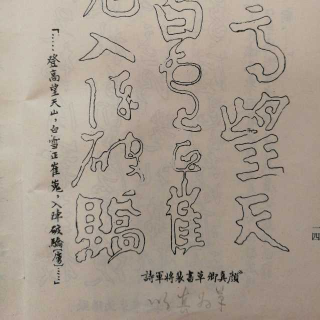 高望天
白雪正崔
嵬入陣破驕
「……登高望天山，白雪正崔嵬，入陣破驕[虜]……」
顏真卿草書裴將軍詩
四